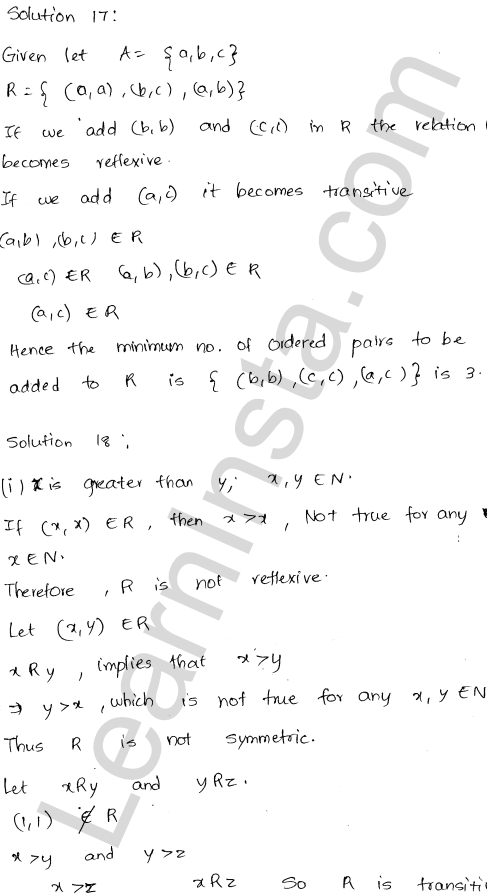 Solution 17:
Given let A = {a,b,c}
R = { (a,a) , (b,c) , (a,b)}
If we add (b,b) and (c,c) in R the relation
becomes reflexive.
If we add (a,c) it becomes transitive
(a,b) , (b,c) ∈ R
(a,c) ∈ R (a,b) , (b,c) ∈ R
(a,c) ∈ R
Hence the minimum no. of ordered pairs to be
added to R is { (b,b) , (c,c) , (a,c) } is 3.
Solution 18 :
(i) x is greater than y; x, y ∈ N.
If (x, x) ∈ R , then x > x , Not true for any
x ∈ N.
Therefore , R is not reflexive.
Let (x,y) ∈ R
x R y , implies that x > y
⇒ y > x , which is not true for any x, y ∈ N
Thus R is not symmetric.
Let xRy and yRz.
(1,1) ∉ R
x > y and y > z
x > z xRz So R is transiti
LearnInsta.com